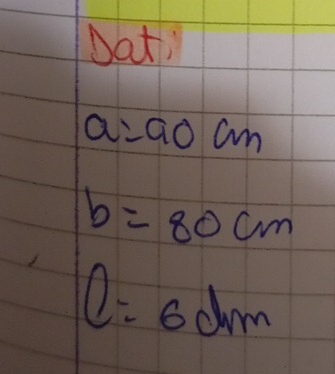 Dati
a=90 cm
b=80 cm
l=6 dm